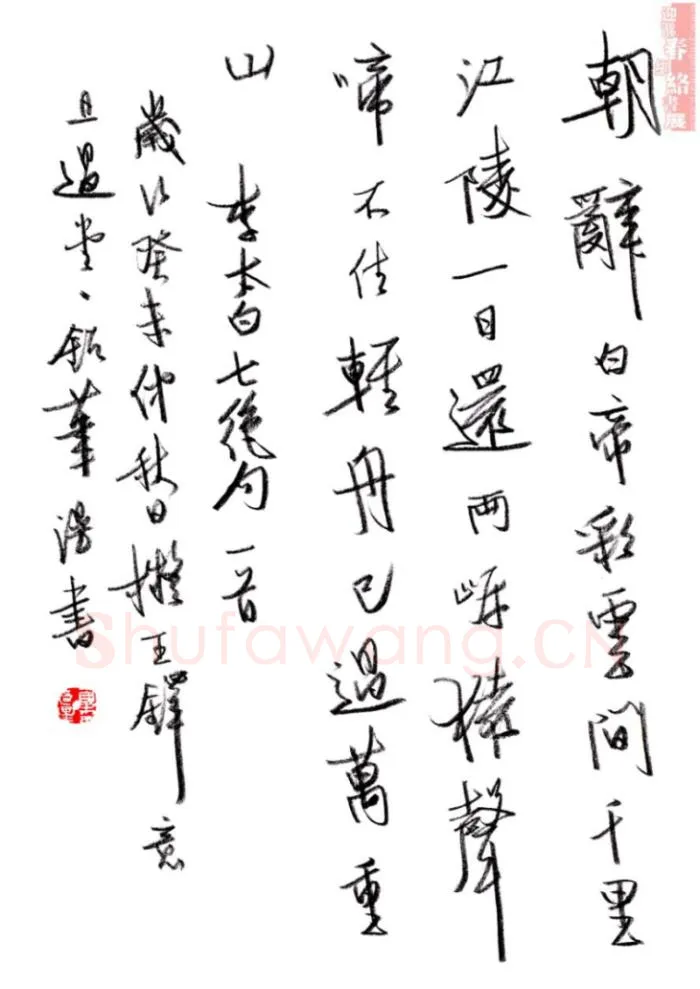 朝辭白帝彩雲間千里
江陵一日還两岸猿聲
啼不住輕舟已過萬重
山
李太白七絕句一首
歲次癸未仲秋日擬王鐸意
且過堂、華漫書
春
絡書展
Shufawang.CN